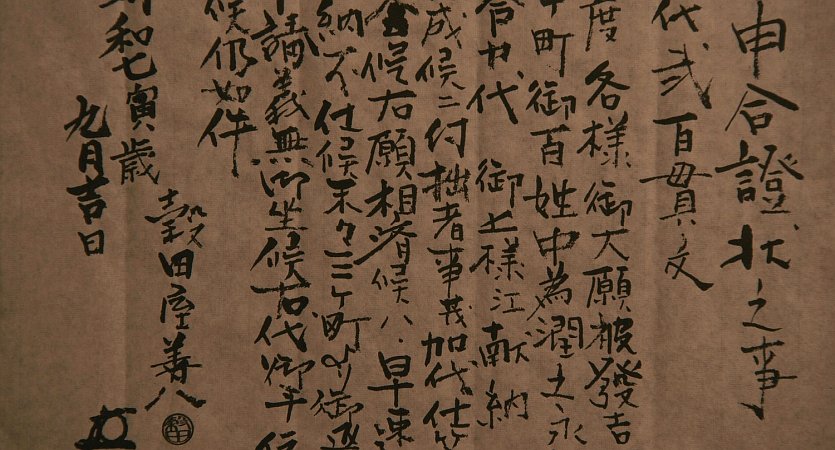 申合證状之事
代弐百貫文
度各様御大願被發吉
中町御百姓中為潤土永
合力代 御上様江献納
成候ニ付拙者事茂加代仕
会候右願相済候ハ早速
納不仕候不々三ヶ町ゟ御返
講義無御坐候右代御手
候仍如件
和七寅歳
九月吉日
穀田屋善八